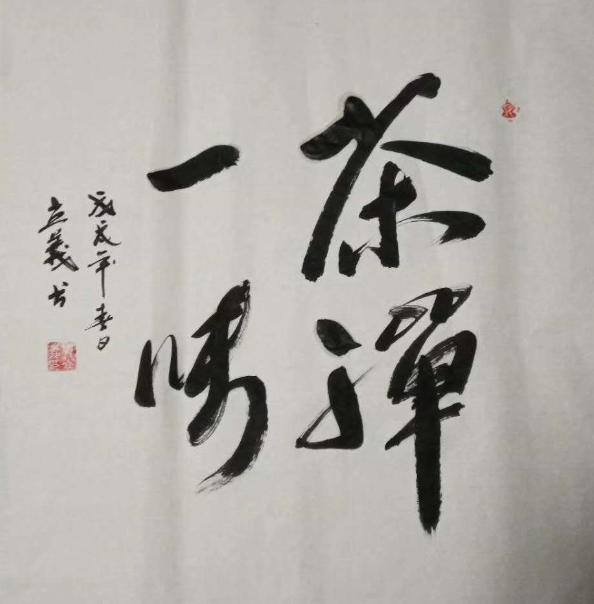 茶禪
一味
戊戌年春日
立義书